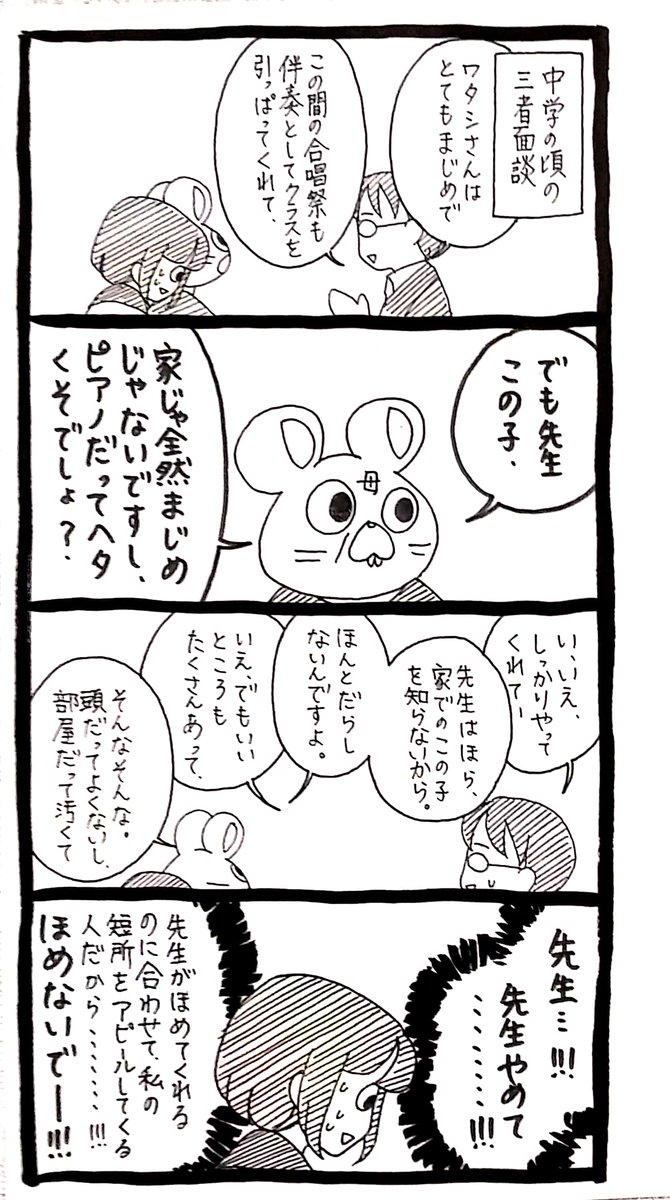 中学の頃の
三者面談
ワタシさんは
とてもまじめで
この間の合唱祭も
伴奏としてクラスを
引っぱってくれて、
でも先生
この子、
母
家じゃ全然まじめ
じゃないですし、
ピアノだってヘタ
くそでしょ？
い、いえ、
しっかりやって
くれてー
先生はほら、
家でのこの子
を知らないから。
ほんとだらし
ないんですよ。
いえ、でもいい
ところも
たくさんあって、
そんなそんな。
頭だってよくないし、
部屋だって汚くて
先生…!!!
先生やめて
………!!!
先生がほめてくれる
のに合わせて、私の
短所をアピールしてくる
人だから………!!!
ほめないでー!!!